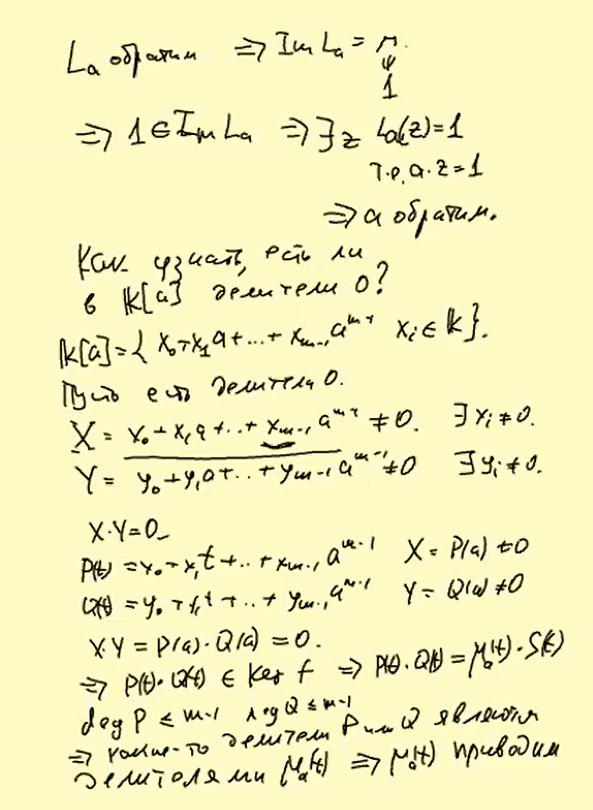 La обратим ⇒ Im La = M.
ψ
1
⇒ 1 ∈ Im La ⇒ ∃ z La(z)=1
т.е. a·z=1
⇒ a обратим.
Как узнать, есть ли
в K[a] делители 0?
K[a]={ x₀+x₁a+...+xₘ₋₁aᵐ⁻¹ xᵢ∈K}.
Пусть есть делители 0.
X = x₀+x₁a+..+xₘ₋₁aᵐ⁻¹ ≠0. ∃xᵢ≠0.
Y = y₀+y₁a+..+yₘ₋₁aᵐ⁻¹ ≠0 ∃yᵢ≠0.
X·Y=0
P(t) = x₀+x₁t+..+xₘ₋₁aᵐ⁻¹ X = P(a) ≠0
Q(t) = y₀+y₁t+..+yₘ₋₁aᵐ⁻¹ Y = Q(a) ≠0
X·Y = P(a)·Q(a) = 0.
⇒ P(t)·Q(t) ∈ Ker f ⇒ P(t)·Q(t) = μₐ(t)·S(t)
deg P ≤ m-1 deg Q ≤ m-1
⇒ какие-то делители P или Q являются
делителями μₐ(t) ⇒ μₐ(t) приводим